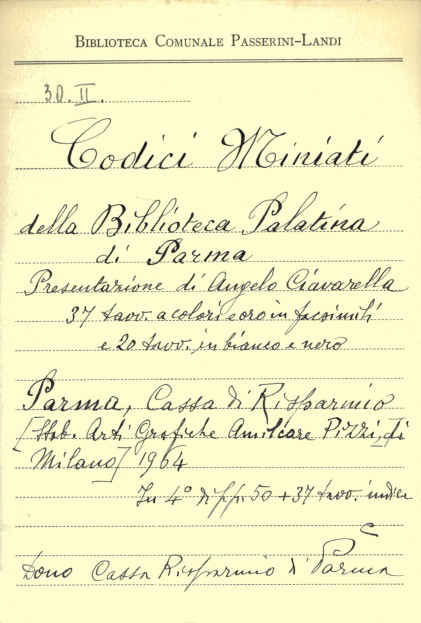 BIBLIOTECA COMUNALE PASSERINI-LANDI
30. II.
Codici Miniati
della Biblioteca Palatina
di Parma
Presentazione di Angelo Ciavarella
37 tavv. a colori e oro in facsimili
e 20 tavv. in bianco e nero
Parma, Cassa di Risparmio
[Stab. Arti Grafiche Amilcare Pizzi, di
Milano] 1964
In 4° di pp. 50 + 37 tavv.
Dono Cassa Risparmio di Parma